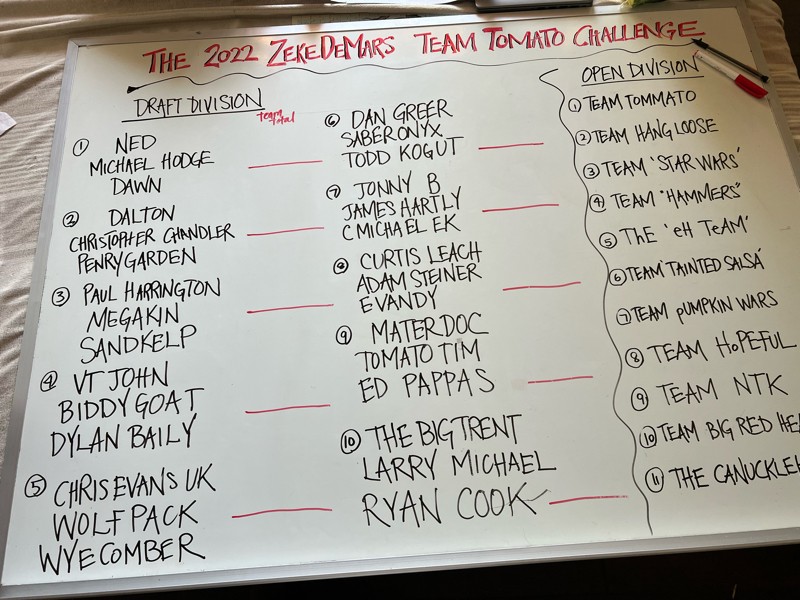 THE 2022 ZEKEDEMARS TEAM TOMATO CHALLENGE
DRAFT DIVISION
team total
① NED
MICHAEL HODGE
DAWN
② DALTON
CHRISTOPHER CHANDLER
PENRYGARDEN
③ PAUL HARRINGTON
MEGAKIN
SANDKELP
④ VT JOHN
BIDDY GOAT
DYLAN BAILY
⑤ CHRIS EVANS UK
WOLFPACK
WYECOMBER
⑥ DAN GREER
SABERONYX
TODD KOGUT
⑦ JONNY B
JAMES HARTLY
CMICHAEL EK
⑧ CURTIS LEACH
ADAM STEINER
EVANDY
⑨ MATERDOC
TOMATO TIM
ED PAPPAS
⑩ THE BIGTRENT
LARRY MICHAEL
RYAN COOK
OPEN DIVISION
① TEAM TOMMATO
② TEAM HANG LOOSE
③ TEAM 'STAR WARS'
④ TEAM "HAMMERS"
⑤ ThE 'eH TeAM'
⑥ TEAM 'TAINTED SALSA'
⑦ TEAM pUMPKIN WARS
⑧ TEAM HoPEFUL
⑨ TEAM NTK
⑩ TEAM BIG RED
⑪ THE